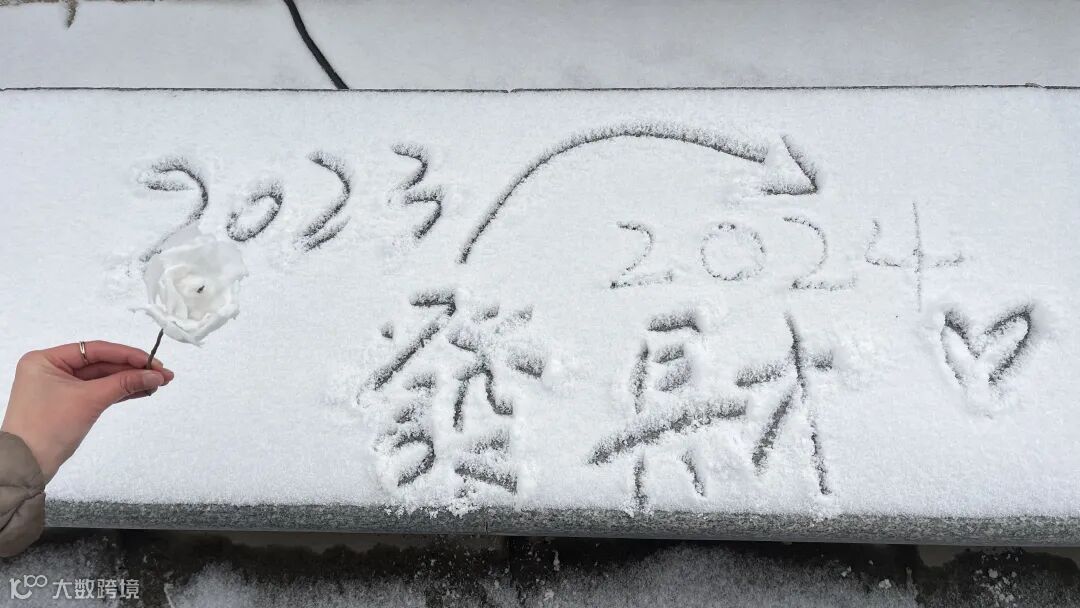 2023
2024
發財
大数跨境